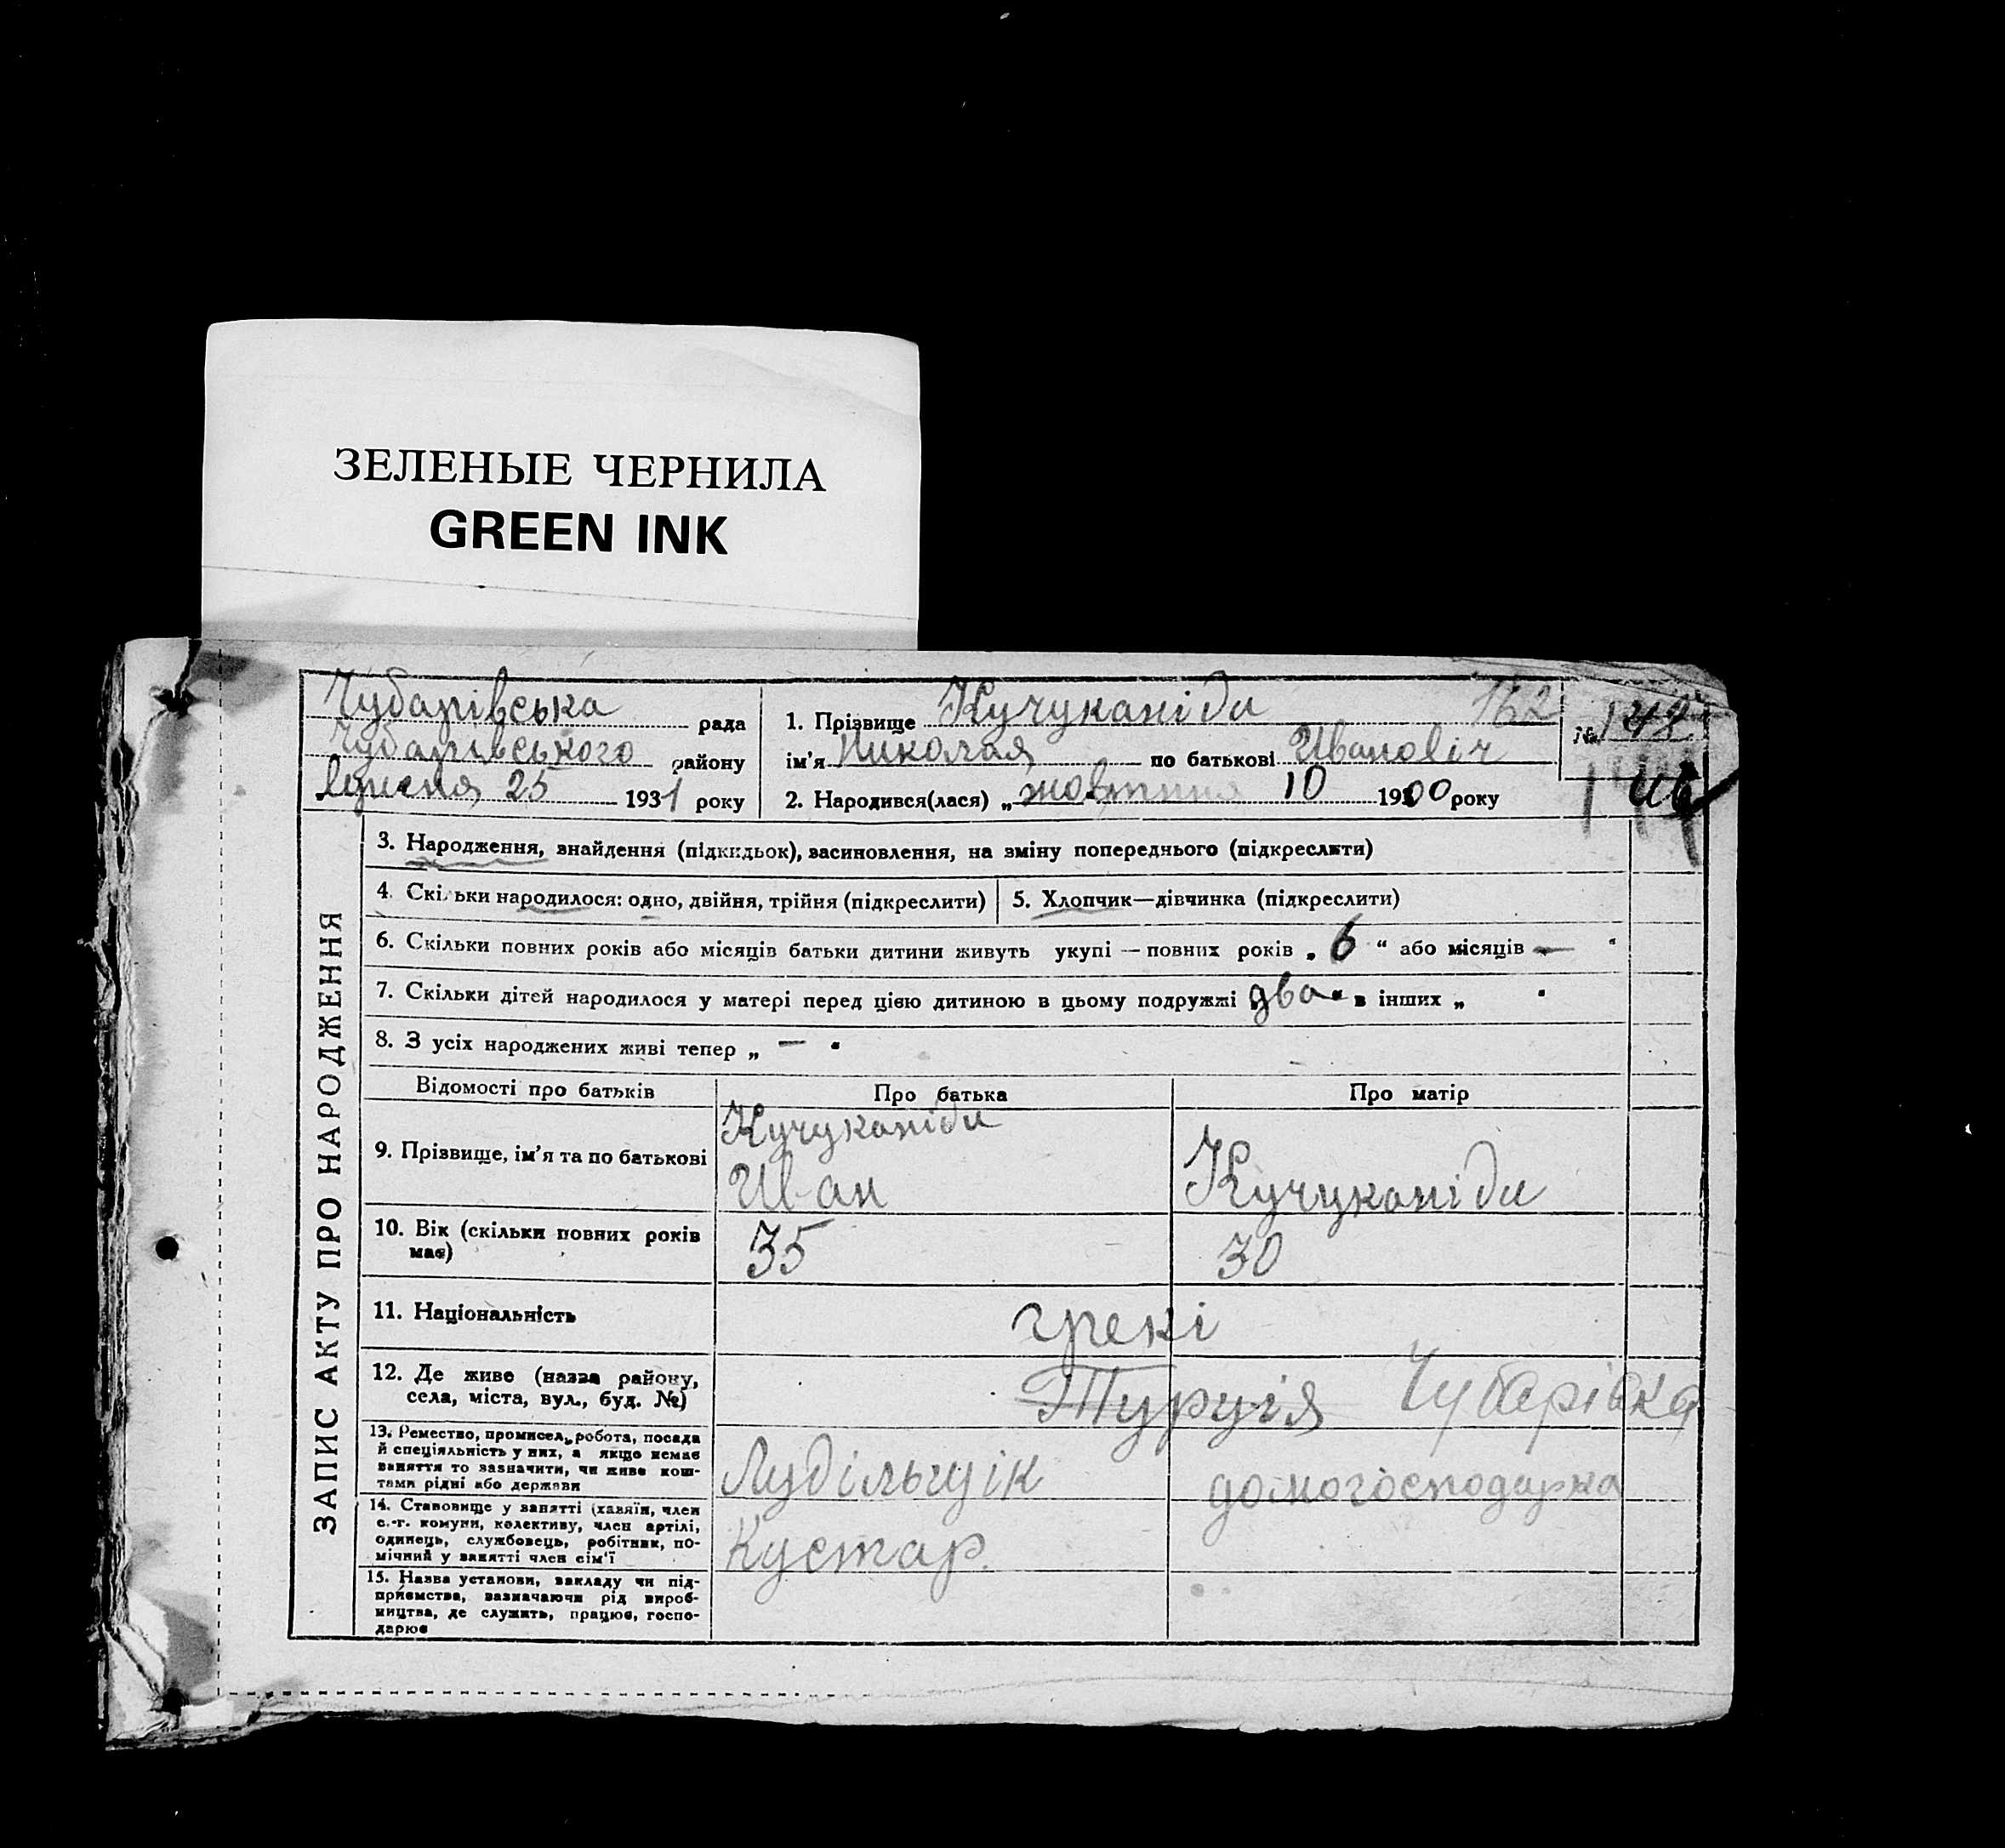 ЗЕЛЕНЫЕ ЧЕРНИЛА
GREEN INK
Чубарівська рада
Чубарівського району
Серпня 25 1931 року
1. Прізвище Кучуканіди 162
ім'я Николая по батькові Иванович
2. Народився(лася) „ жовтня 10 1900 року
№ 142
146
ЗАПИС АКТУ ПРО НАРОДЖЕННЯ
3. Народження, знайдення (підкидьок), засиновлення, на зміну попереднього (підкреслити)
4. Скільки народилося: одно, двійня, трійня (підкреслити)
5. Хлопчик—дівчинка (підкреслити)
6. Скільки повних років або місяців батьки дитини живуть укупі — повних років „ 6 “ або місяців — “
7. Скільки дітей народилося у матері перед цією дитиною в цьому подружжі два “ в інших „ “
8. З усіх народжених живі тепер „ — “
Відомості про батьків
Про батька
Про матір
9. Прізвище, ім'я та по батькові
Кучуканіди
Иван
Кучуканіди
10. Вік (скільки повних років
має)
35
30
11. Національність
грекі
12. Де живе (назва району,
села, міста, вул., буд. №)
Турція Чубарівка
13. Ремество, промисел, робота, посада
й спеціяльність у них, а якщо немає
заняття то зазначити, чи живе кош-
тами рідні або держави
Лудільщік
домогосподарка
14. Становище у занятті (хазяїн, член
с.-г. комуни, колективу, член артілі,
одинець, службовець, робітник, по-
мічний у занятті член сім'ї
Кустар.
15. Назва установи, закладу чи під-
приємства, зазначаючи рід вироб-
ництва, де служить, працює, госпо-
дарює